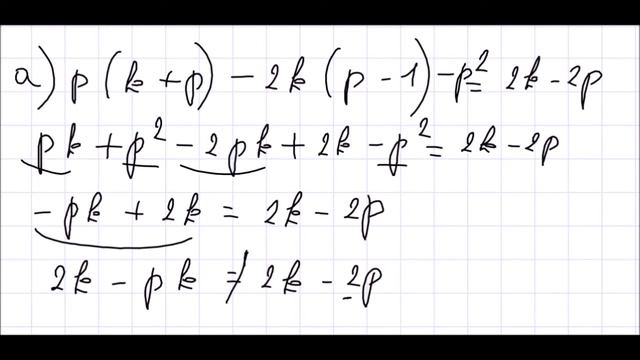 a) p(k + p) − 2k(p − 1) − p² = 2k − 2p
pk + p² − 2pk + 2k − p² = 2k − 2p
−pk + 2k = 2k − 2p
2k − pk ≠ 2k − 2p